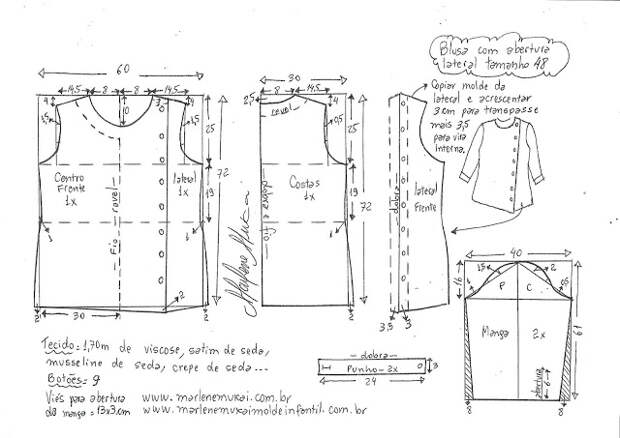 Blusa com abertura
lateral tamanho 48
60
14,5 8 8 14,5
4
1,5
10
3
4
1,5
25
Centro
Frente
1x
lateral
1x
Fio ravel
19
72
1
1
2
2
30
2
Marlene Mukai
30
8 14,5
2,5
revel
4
0,5
25
Costas
1x
dobra e fio
19
72
1
2
Copiar molde da
lateral e acrescentar
3 cm para transpasse
mais 3,5
para vira
interna.
dobra
lateral
Frente
3,5 3
40
16
1,5
2
0,5
P C
Manga 2x
61
abertura
6
8 8
Tecido = 1,70m de viscose, satim de seda,
musseline de seda, crepe de seda...
Botões = 9
Viés para abertura www.marlenemukai.com.br
da manga = 13x3cm www.marlenemukaimoldeinfantil.com.br
dobra
Punho - 2x
3
24